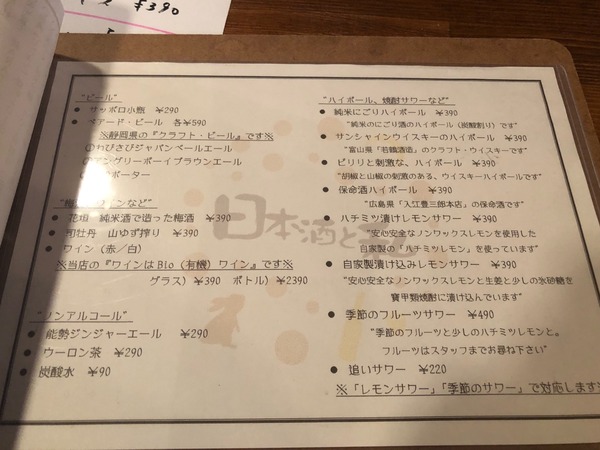 ¥390
"ビール"
● サッポロ小瓶 ¥290
● ベアード・ビール 各¥590
※静岡県の『クラフト・ビール』です※
①わびさびジャパンペールエール
②アングリーボーイブラウンエール
ポーター
など"
● 花垣 純米酒で造った梅酒 ¥390
● 司牡丹 山ゆず搾り ¥390
● ワイン（赤／白）
※当店の『ワインはBio（有機）ワイン』です※
グラス）¥390 ボトル）¥2390
"ノンアルコール"
● 能勢ジンジャーエール ¥290
● ウーロン茶 ¥290
● 炭酸水 ¥90
日本酒と
"ハイボール、焼酎サワーなど"
● 純米にごりハイボール ¥390
"純米のにごり酒のハイボール（炭酸割り）です"
● サンシャインウイスキーのハイボール ¥390
"富山県「若鶴酒造」のクラフト・ウイスキーです"
● ピリリと刺激な、ハイボール ¥390
"胡椒と山椒の刺激のある、ウイスキーハイボールです"
● 保命酒ハイボール ¥390
"広島県「入江豊三郎本店」の保命酒です"
● ハチミツ漬けレモンサワー ¥390
"安心安全なノンワックスレモンを使用した
自家製の「ハチミツレモン」を使っています"
● 自家製漬け込みレモンサワー ¥390
"安心安全なノンワックスレモンと生姜と少しの氷砂糖を
寶甲類焼酎に漬け込んでいます"
● 季節のフルーツサワー ¥490
"季節のフルーツと少しのハチミツレモンと。
フルーツはスタッフまでお尋ね下さい"
● 追いサワー ¥220
※「レモンサワー」「季節のサワー」で対応します※